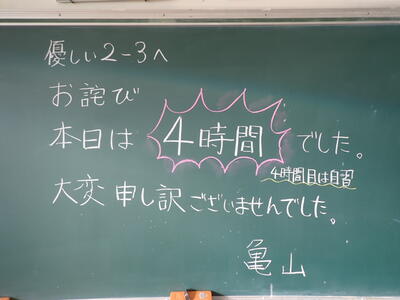 優しい2-3へ
お詫び
本日は4時間でした。
4時間目は自習
大変申し訳ございませんでした。
亀山